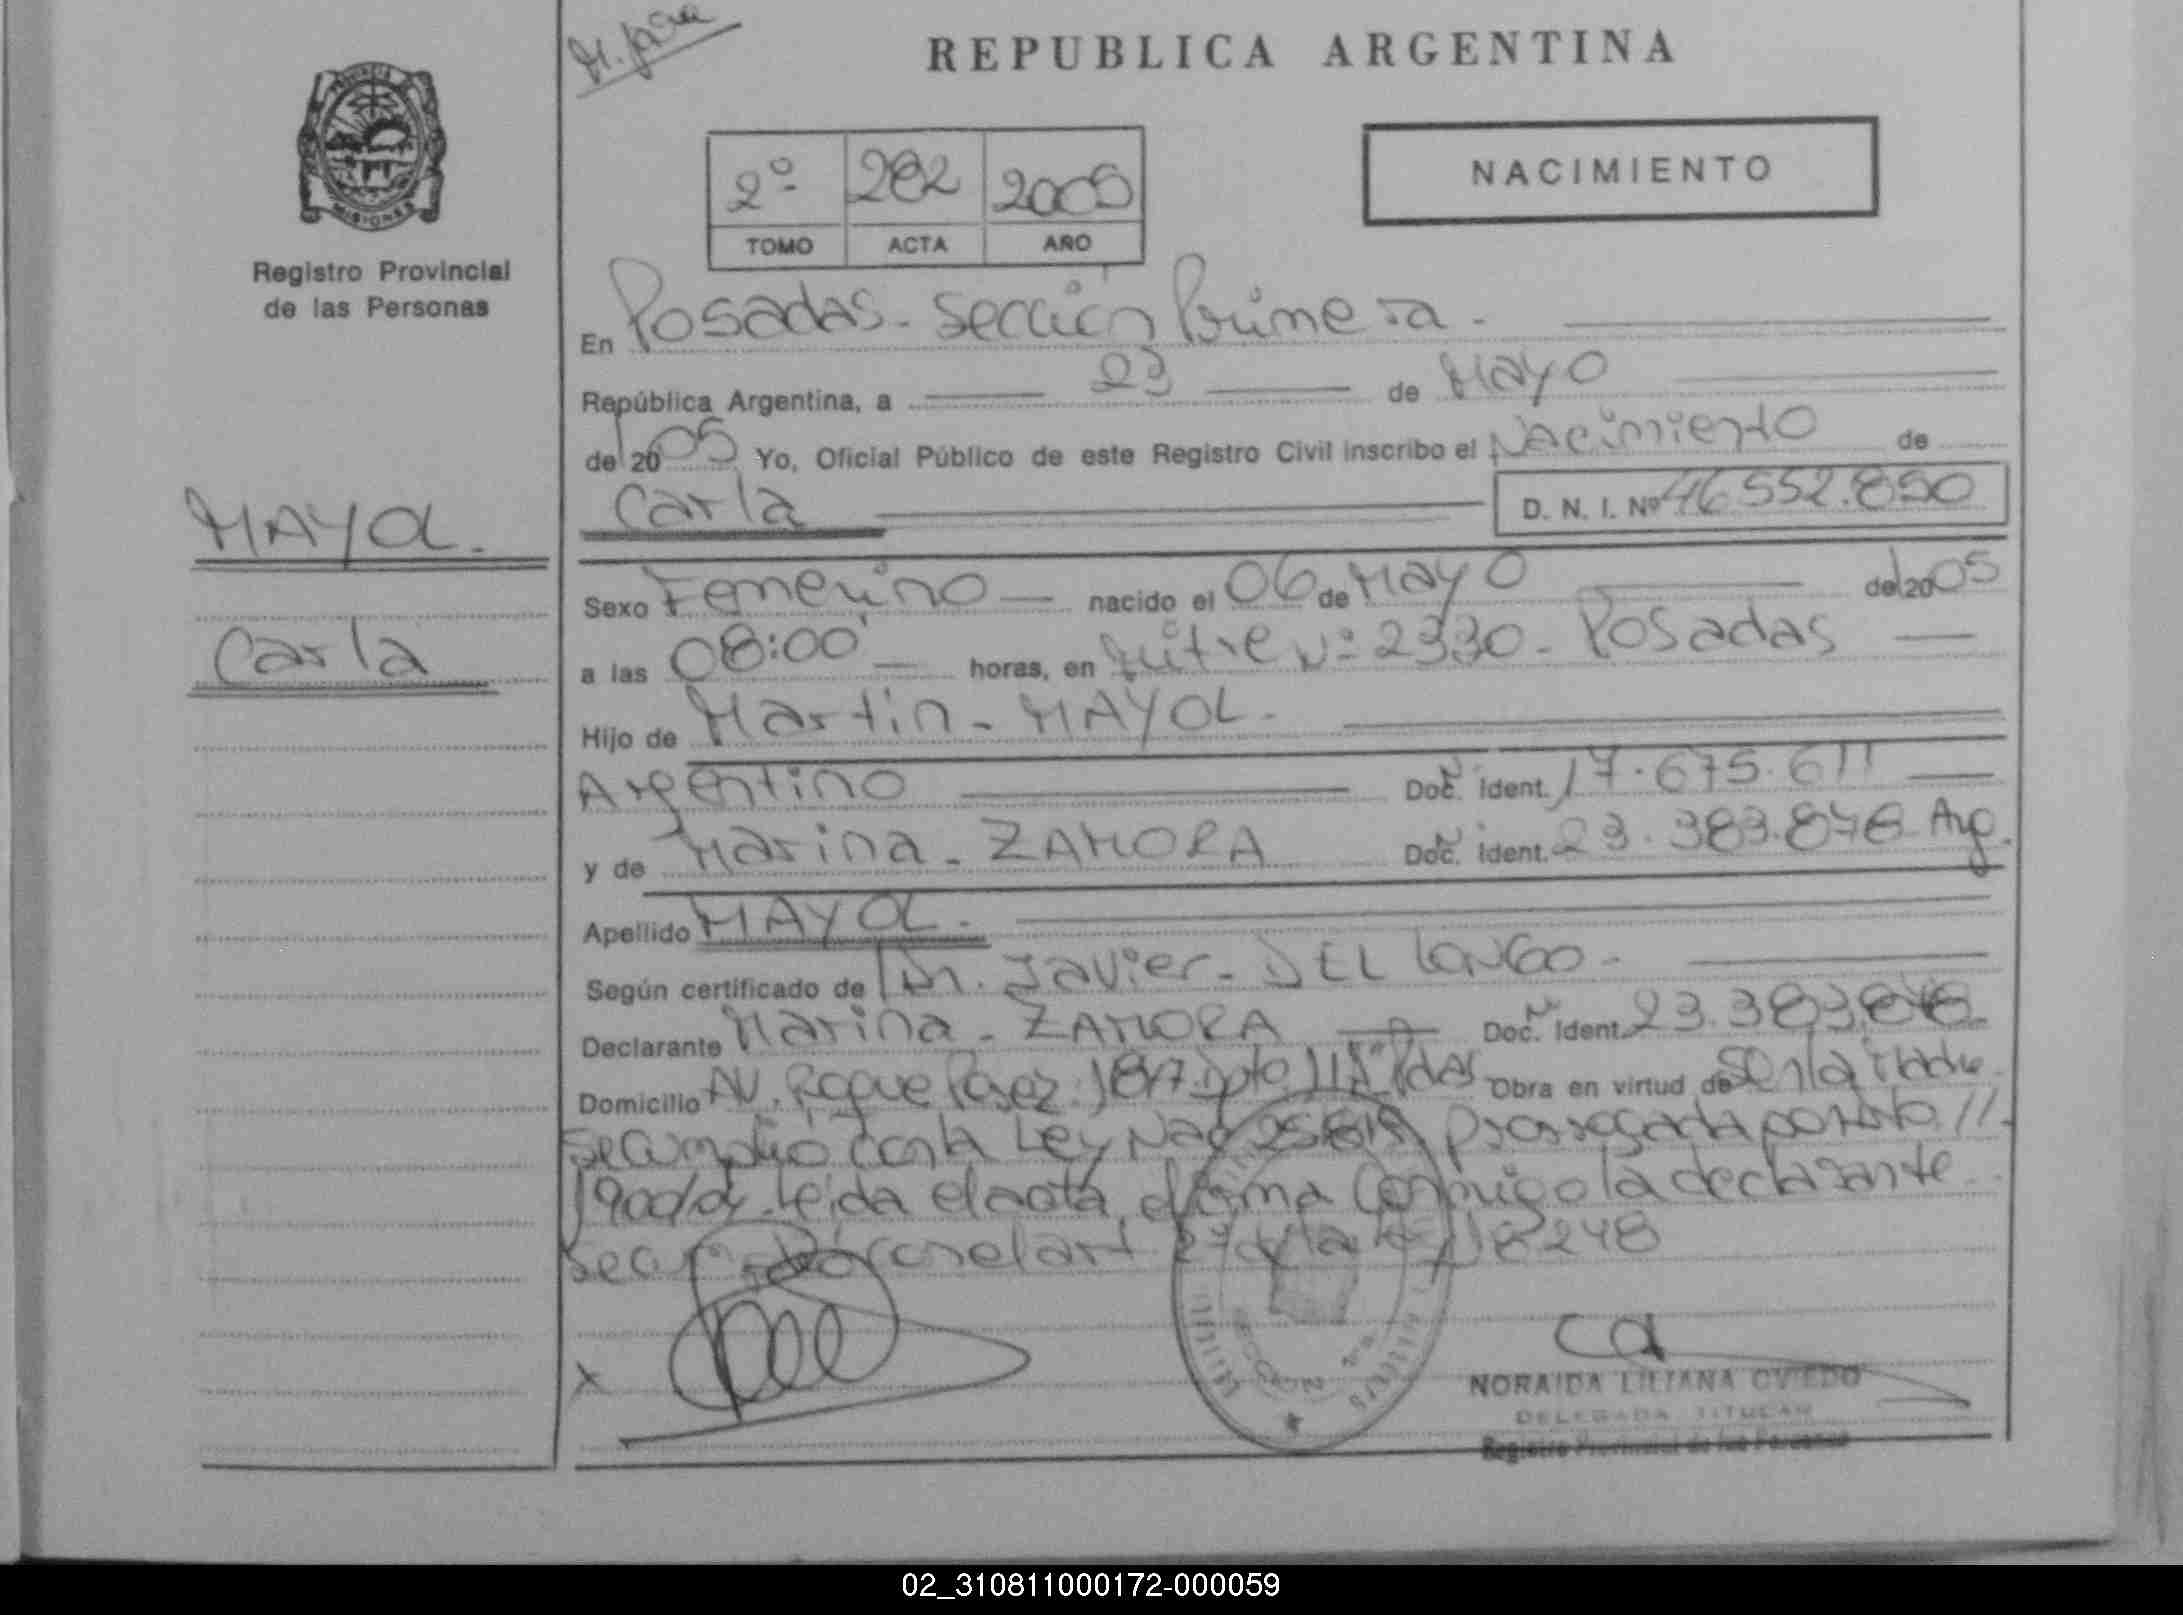 REPUBLICA ARGENTINA
MISIONES
Registro Provincial
de las Personas
2º 282 2005
TOMO ACTA AÑO
NACIMIENTO
En Posadas - Sección Primera -
República Argentina, a 23 de Mayo
de 2005 Yo, Oficial Público de este Registro Civil inscribo el Nacimiento de
Carla D. N. I. Nº 46.552.850
MAYOL.
Carla
Sexo Femenino nacido el 06 de Mayo de 2005
a las 08:00 horas, en Mitre Nº 2330 - Posadas
Hijo de Martin - MAYOL -
Argentino Doc. Ident. 17.675.611
y de Marina - ZAMORA Doc. Ident. 23.383.848 Arg.
Apellido MAYOL -
Según certificado de Dr. Javier - DEL LONGO -
Declarante Marina - ZAMORA Doc. Ident. 23.383.848
Domicilio AV. Roque Dpto Obra en virtud de Ser la Madre
Se cumplió con la Ley Nac 25819 prorrogada por
leida el acta, la firma Conmigo la declarante
Se con el art 18248
X
NORAIDA LILIANA OVIEDO
DELEGADA TITULAR
Registro Provincial de las Personas
02_310811000172-000059